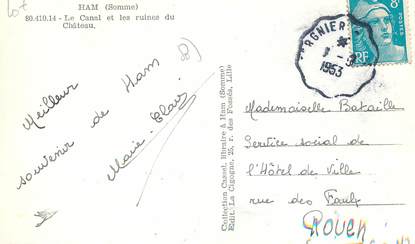 HAM (Somme)
80.410.14 - Le Canal et les ruines du
Château.
Meilleur
souvenir de Ham
Marie-
Collection Cassel, libraire à Ham (Somme)
Edit. La Cigogne, 25, r. des Fossés, Lille
1953
8
Mademoiselle Bataille
Service social de
l'Hôtel de Ville
rue des
Rouen